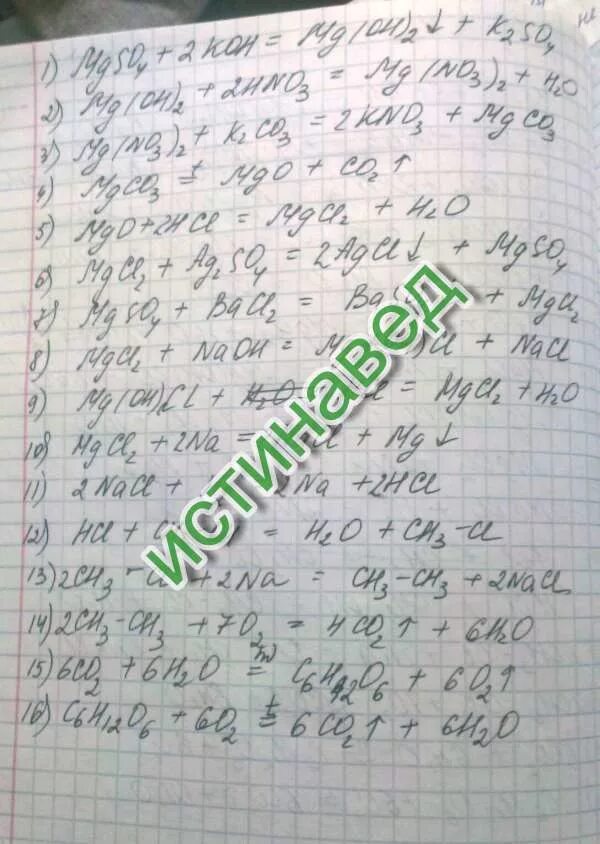 1) MgSO4 + 2KOH = Mg(OH)2↓ + K2SO4
2) Mg(OH)2 + 2HNO3 = Mg(NO3)2 + H2O
3) Mg(NO3)2 + K2CO3 = 2KNO3 + MgCO3
4) MgCO3 t= MgO + CO2↑
5) MgO + 2HCl = MgCl2 + H2O
6) MgCl2 + Ag2SO4 = 2AgCl↓ + MgSO4
7) MgSO4 + BaCl2 = Ba + MgCl2
8) MgCl2 + NaOH = M Cl + NaCl
9) Mg(OH)Cl + = MgCl2 + H2O
10) MgCl2 + 2Na = + Mg↓
11) 2NaCl + 2Na + 2HCl
12) HCl + = H2O + CH3-Cl
13) 2CH3 - + 2Na = CH3-CH3 + 2NaCl
14) 2CH3-CH3 + 7O2 = 4CO2↑ + 6H2O
15) 6CO2 + 6H2O = C6H12O6 + 6O2↑
16) C6H12O6 + 6O2 t= 6CO2↑ + 6H2O
истинавед